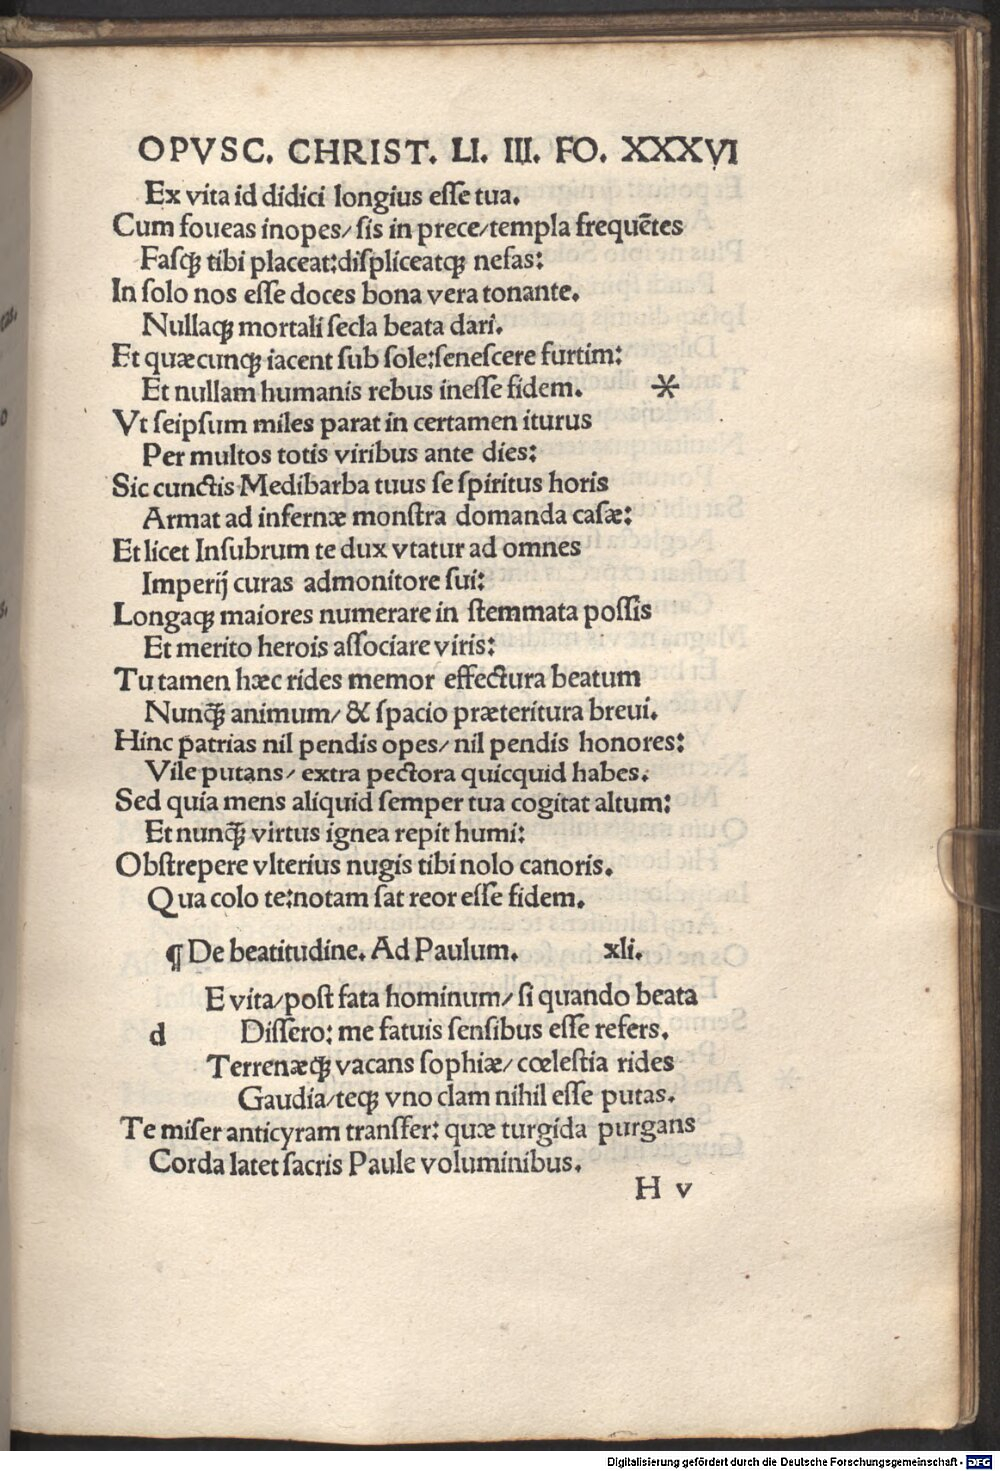 OPVSC. CHRIST. LI. III. FO. XXXVI
Ex vita id didici longius eſſe tua.
Cum foueas inopes/ ſis in prece/templa frequētes
Faſqꝫ tibi placeat:diſpliceatqꝫ nefas:
In ſolo nos eſſe doces bona vera tonante.
Nullaqꝫ mortali ſecla beata dari.
Et quæcunqꝫ iacent ſub ſole:ſeneſcere furtim:
Et nullam humanis rebus ineſſe fidem. *
Vt ſeipſum miles parat in certamen iturus
Per multos totis viribus ante dies:
Sic cunctis Medibarba tuus ſe ſpiritus horis
Armat ad infernæ monſtra domanda caſæ:
Et licet Inſubrum te dux vtatur ad omnes
Imperij curas admonitore ſui:
Longaqꝫ maiores numerare in ſtemmata poſſis
Et merito herois aſſociare viris:
Tu tamen hæc rides memor effectura beatum
Nunqꝫ̃ animum/ & ſpacio præteritura breui.
Hinc patrias nil pendis opes/ nil pendis honores:
Vile putans/ extra pectora quicquid habes.
Sed quia mens aliquid ſemper tua cogitat altum:
Et nunqꝫ̃ virtus ignea repit humi:
Obſtrepere vlterius nugis tibi nolo canoris.
Qua colo te:notam ſat reor eſſe fidem.
¶ De beatitudine. Ad Paulum. xli.
E vita/poſt fata hominum/ ſi quando beata
d Diſſero: me fatuis ſenſibus eſſe refers.
Terrenæqꝫ vacans ſophiæ/ cœleſtia rides
Gaudia/teqꝫ vno clam nihil eſſe putas.
Te miſer anticyram tranſfer: quæ turgida purgans
Corda latet ſacris Paule voluminibus.
H v
Digitalisierung gefördert durch die Deutsche Forschungsgemeinschaft - DFG